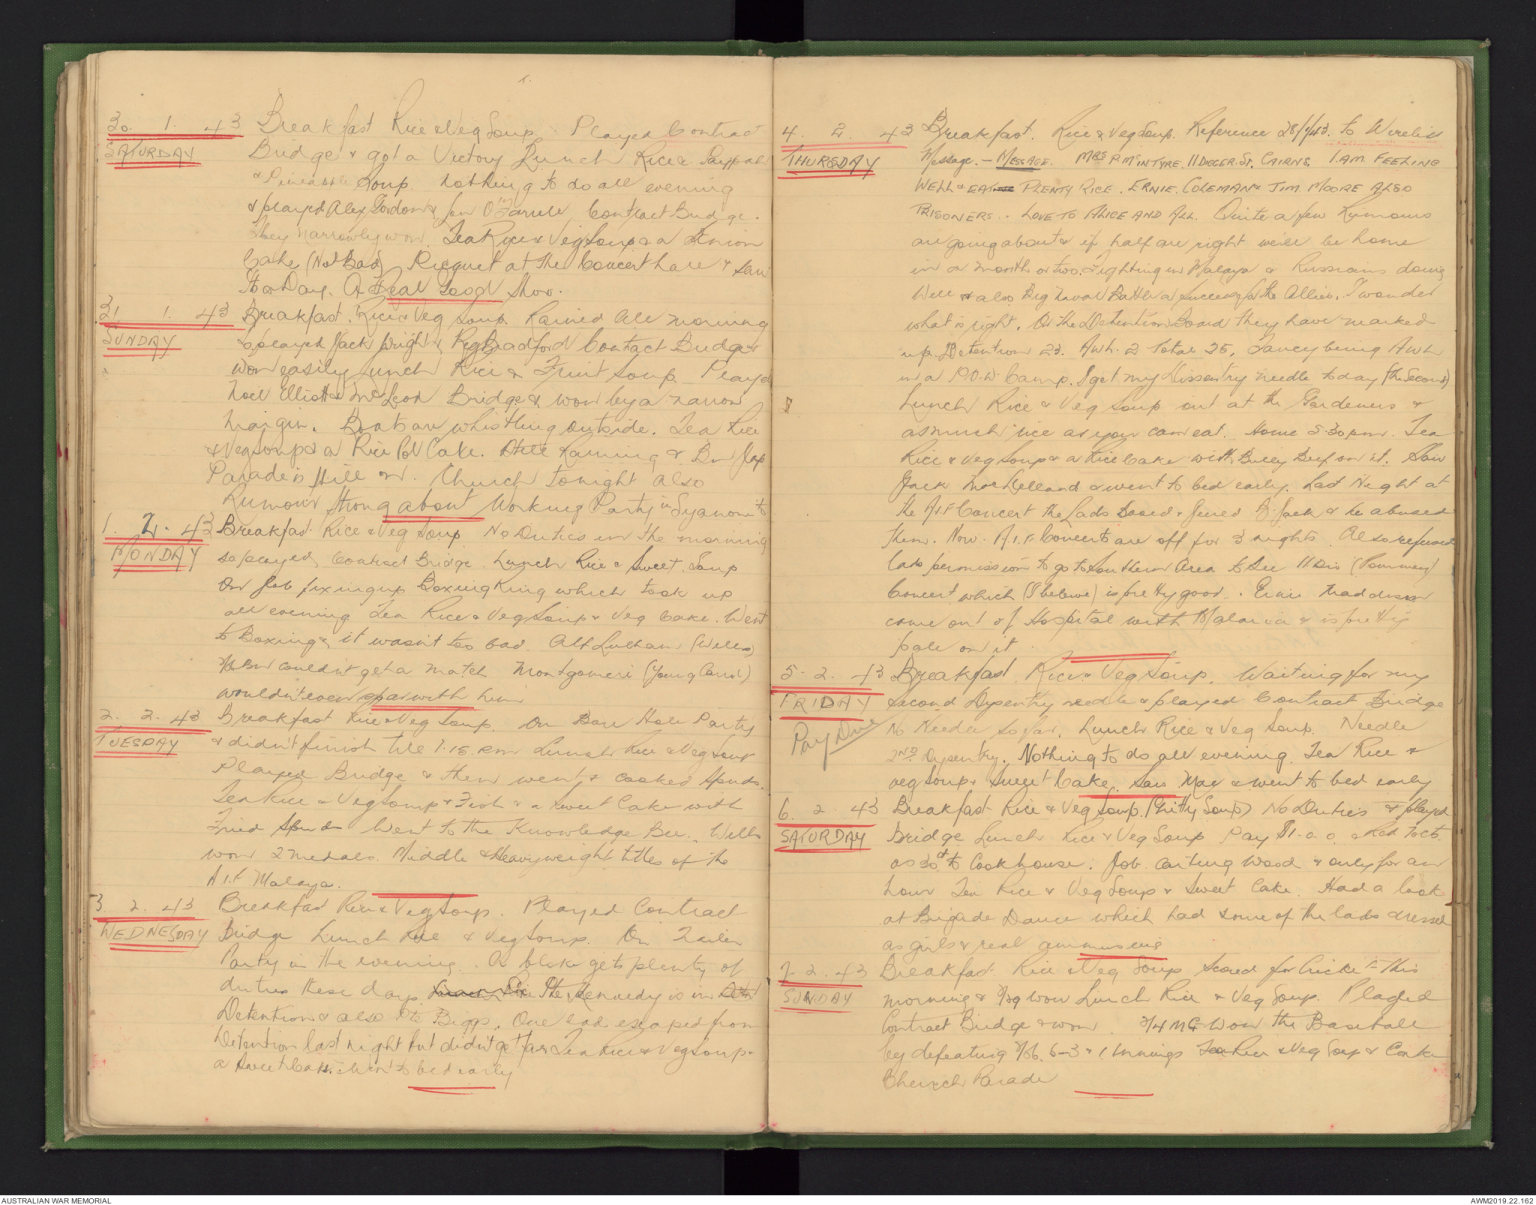 30. 1. 43
SATURDAY
Breakfast Rice & Veg Soup. Played Contract
Bridge & got a Victory Lunch Rice &
& Pineapple Soup. Nothing to do all evening
& played Alex Gordon & Jim O'Farrell Contract Bridge.
They narrowly won. Tea Rice & Veg Soup & a Onion
Cake (Not Bad) Ricquet at the Concert hall & saw
A Real Good Show.
31 1. 43
SUNDAY
Breakfast. Rice & Veg Soup. Rained all morning
& played Jack Wright & Reg Bradford Contract Bridge &
won easily Lunch Rice & Fruit Soup. Played
Noel Elliott & McLeod Bridge & won by a narrow
margin. Boatan whistling outside. Tea Rice
& Veg Soup & a Rice Pol Cake. Still Raining & Bn
Parade is still on. Church tonight also
Rumour strong about Working Party in
1 2. 43
MONDAY
Breakfast Rice & Veg Soup No Duties in the morning
so played Contract Bridge. Lunch Rice & Sweet Soup
On Job fixing up Boxing Ring which took up
all evening Tea Rice & Veg Soup & Veg Cake. Went
to Boxing & it wasn't too bad. Alf (Wells)
couldn't get a match Montgomeri (Young)
wouldn't even spar with him
2. 2. 43
TUESDAY
Breakfast Rice & Veg Soup. On Bore Hole Party
& didn't finish till 1.15. P.M Lunch Rice & Veg Soup
Played Bridge & then went & cooked Spuds.
Tea Rice & Veg Soup & Fish & a Sweet Cake with
Fried Spuds Went to the Knowledge Bee. Wells
won 2 medals. Middle & Heavyweight titles of the
A.I.F Malaya.
3. 2. 43
WEDNESDAY
Breakfast Rice & Veg Soup. Played Contract
Bridge Lunch Rice & Veg Soup. On Trailer
Party in the evening. A bloke gets plenty of
duties these days. Pte Kennedy is in
Detention & also Pte Biggs. One lad escaped from
Detention last night but didn't get far Tea Rice & Veg Soup &
a Sweet Cake. Went to bed early
4. 2. 43
THURSDAY
Breakfast. Rice & Veg Soup. Reference 28/1/43. to Wireless
Message. — MESSAGE. MRS P. McINTYRE. 11 DIGGER. ST. CAIRNS. I AM FEELING
WELL & EAT PLENTY RICE. ERNIE. COLEMAN & JIM MOORE ALSO
PRISONERS. LOVE TO ALICE AND ALL. Quite a few Rumours
are going about & if half are right we'll be home
in a month or two. Fighting in Malaya & Russians doing
Well & also Big Naval Battle a success to the Allies. I wonder
what is right. On the Detention Board they have marked
up. Detention 23. Awl. 2 Total 25. Fancy being Awl
in a P.O.W Camp. I get my Dissentry needle today (the Second)
Lunch Rice & Veg Soup out at the Gardeners &
as much rice as you can eat. Home 5-30 p.m. Tea
Rice & Veg Soup & a Rice Cake with Bully Beef on it. Saw
Jack & went to bed early. Last Night at
the A.I.F Concert the Lads & Jeered & he abused
them. Now A.I.F Concerts are off for 3 nights. Also refused
lads permission to go to Southern Area to See 11 Div (Pommies)
Concert which (I believe) is pretty good. Ernie
come out of Hospital with Malaria & is pretty
pale on it.
5. 2. 43
FRIDAY
Breakfast. Rice & Veg Soup. Waiting for my
Second Dysentry needle & played Contract Bridge
No Needle so far. Lunch Rice & Veg Soup. Needle
2ND Dysentry. Nothing to do all evening. Tea Rice &
veg Soup & Sweet Cake. Saw Mac & went to bed early
6. 2 43
SATURDAY
Breakfast Rice & Veg Soup. No Duties & played
Bridge Lunch Rice & Veg Soup Pay $1-0-0
as 30 to Cookhouse. Job. Carting Wood & only for an
hour Tea Rice & Veg Soup & Sweet Cake. Had a look
at Brigade Dance which had some of the lads dressed
as girls & real
7. 2. 43
SUNDAY
Breakfast. Rice & Veg Soup Scored for Cricket This
morning & 2/29 won Lunch Rice & Veg Soup. Played
Contract Bridge & won. 2/4 MG Won the Baseball
by defeating 2/26. 6-3 & 1 Innings & Veg Soup & Cake
Church Parade
AUSTRALIAN WAR MEMORIAL
AWM2019.22.162